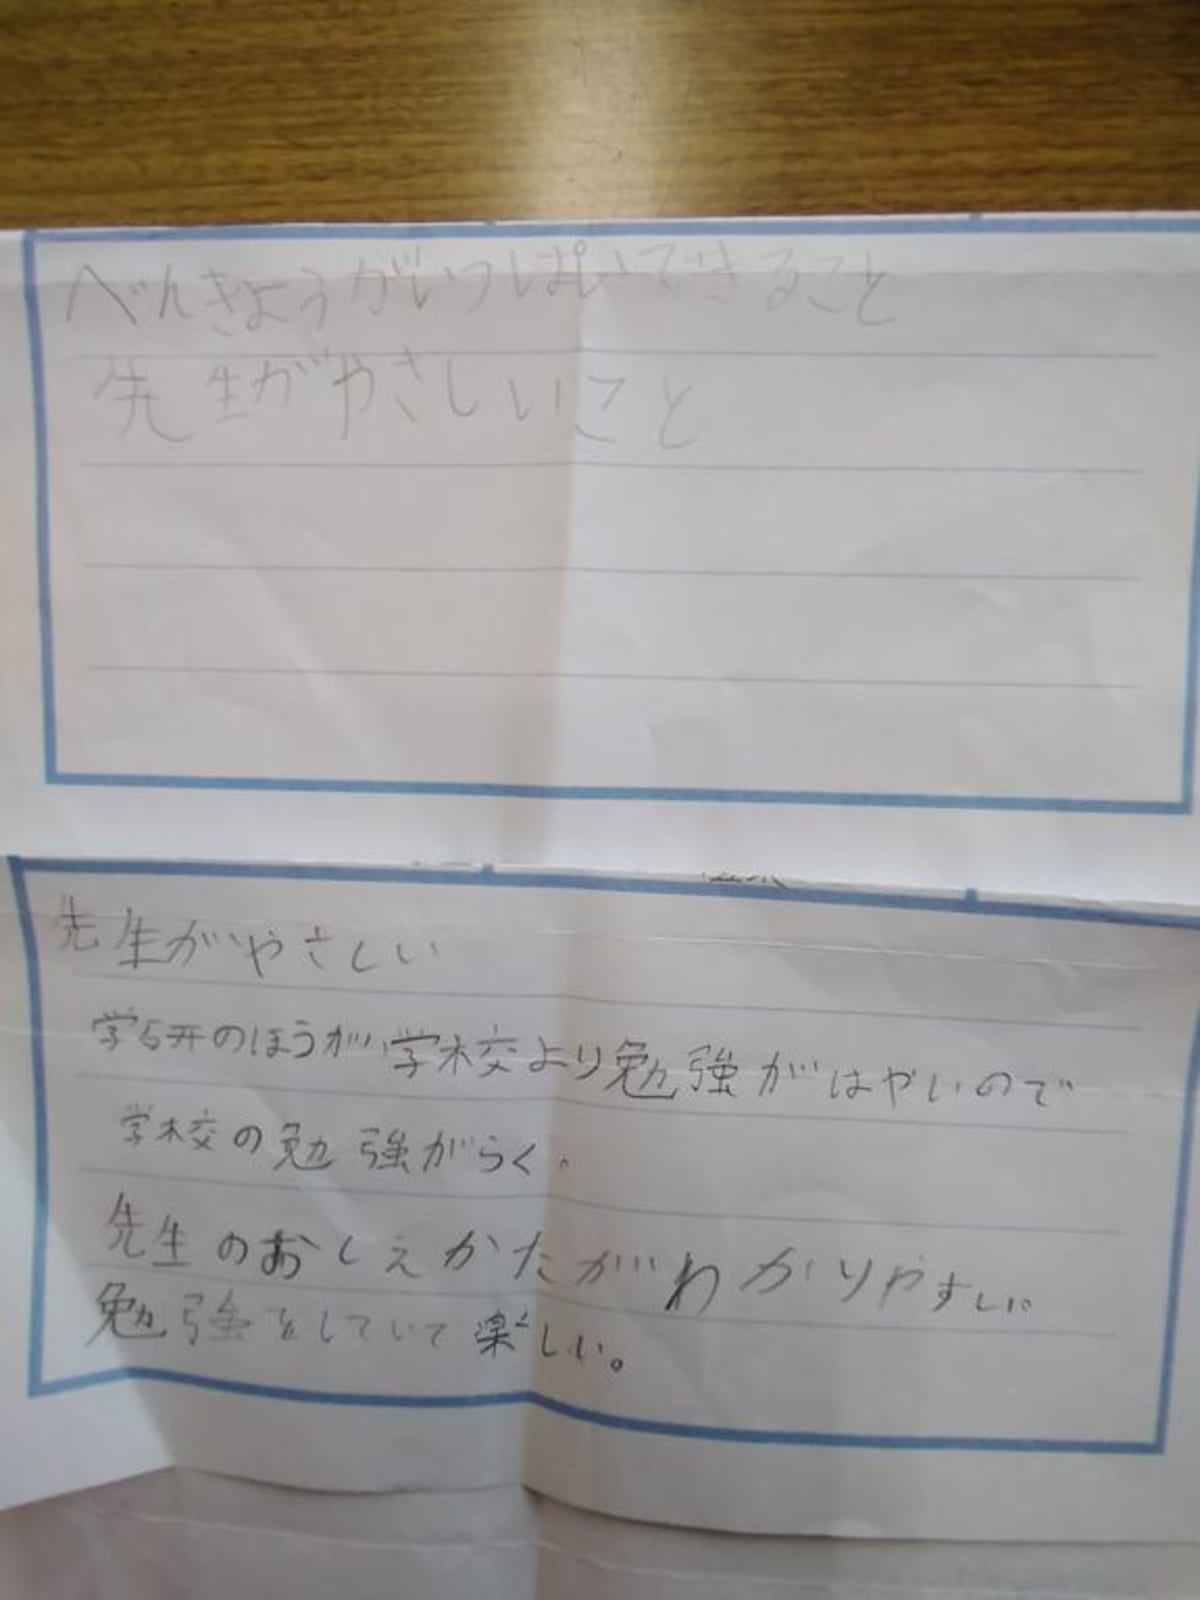 べんきょうがいっぱいできること
先生がやさしいこと
先生がやさしい
学研のほうが学校より勉強がはやいので
学校の勉強がらく。
先生のおしえかたがわかりやすい。
勉強をしていて楽しい。